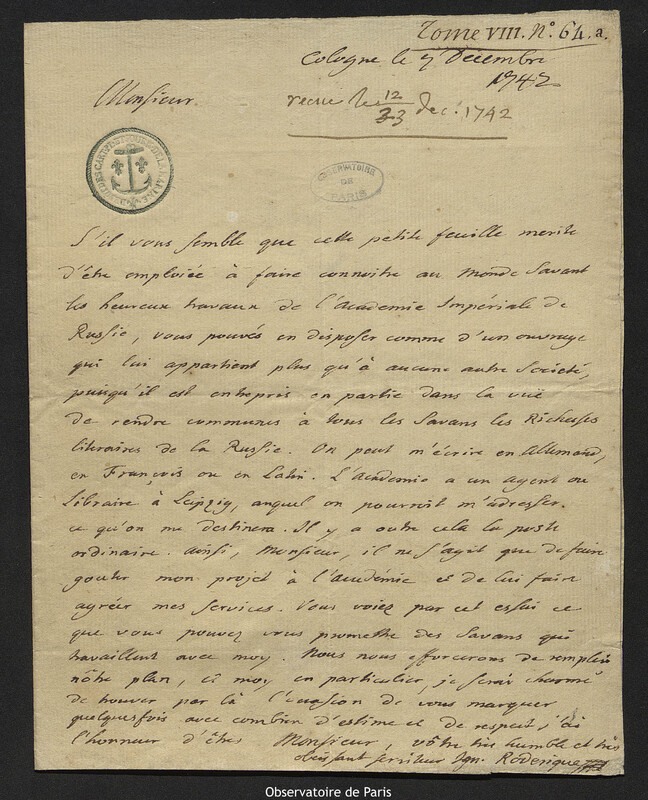 Tome VIII. N.º 64. a.
Cologne le 7 Decembre
1742
Monsieur.
receue le 12/23 dec. 1742
OBSERVATOIRE
DE
PARIS
S'il vous semble que cette petite feuille merite
d'être emploiée à faire connoitre au Monde Savant
les heureux travaux de l'Academie Impériale de
Russie, vous pouvés en disposer comme d'un ouvrage
qui lui appartient plus qu'à aucune autre Société,
puisqu'il est entrepris en partie dans la vuë
de rendre communes à tous les Savans les Richesses
literaires de la Russie. On peut m'écrire en Allemand,
en François ou en Latin. L'Academie a un agent ou
Libraire à Leipzig, auquel on pourroit m'adresser
ce qu'on me destinera. Il y a outre cela la poste
ordinaire. ainsi, Monsieur, il ne s'agit que de faire
gouter mon projet à l'académie et de lui faire
agréer mes services. Vous voiez par cet essai ce
que vous pouvez vous promettre des Savans qui
travaillent avec moy. Nous nous efforcerons de remplir
nôtre plan, et moy en particulier, je serai charmé
de trouver par là l'occasion de vous marquer
quelquesfois avec combien d'estime et de respect j'ai
l'honneur d'être Monsieur, vôtre très humble et très
obeissant serviteur Ign. Roderique
Observatoire de Paris